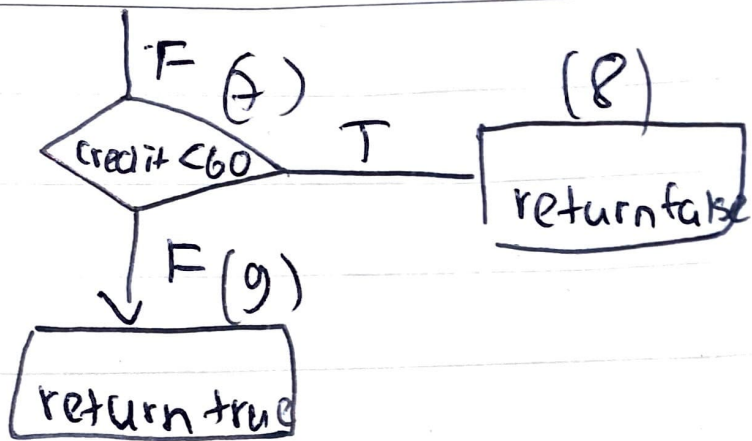 F (7) (8)
credit <60 T
return false
F (9)
return true